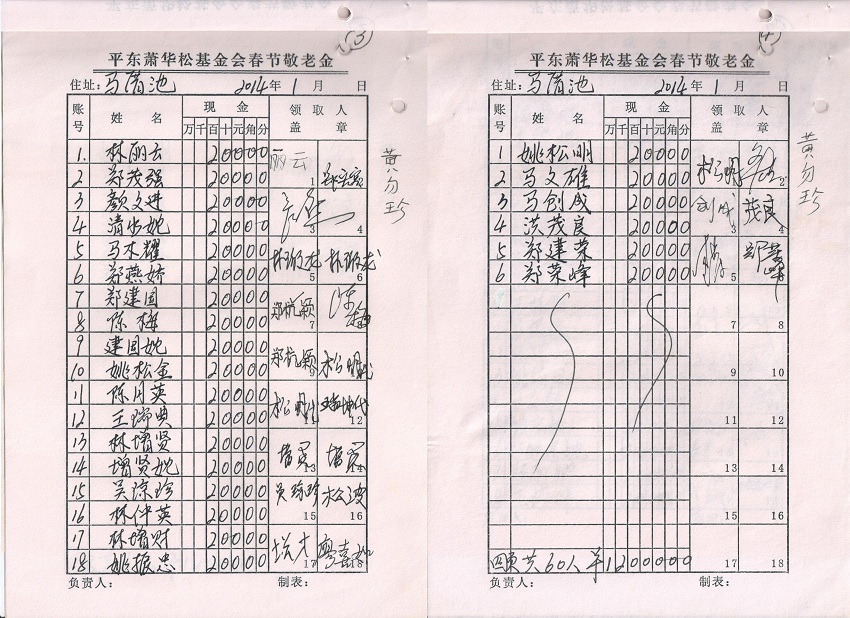 (3)
平东萧华松基金会春节敬老金
住址: 马厝池 2014年 1 月 日
账号 姓名 现金 领取人
万千百十元角分 盖章
1. 林丽云 20000 丽云 1
2 郑茂强 20000 2
3 颜文进 20000 3
4 清步她 20000 4
5 马木耀 20000 5
6 郑燕娇 20000 6
7 郑建国 20000 郑杭颖 7
8 陈梅 20000 陈梅
9 建国她 20000 郑杭颖 9
10 姚松金 20000 松明代
11 陈月英 20000 松明代 11
12 王瑞典 20000 12
13 林增贤 20000 增贤 13
14 增贤她 20000 增贤 14
15 吴琼珍 20000 吴琼珍 15
16 林仲英 20000 松波 16
17 林增财 20000 增才 17
18 姚振忠 20000 18
负责人: 制表:
黄勿珍
(4)
平东萧华松基金会春节敬老金
住址: 马厝池 2014年 1 月 日
账号 姓名 现金 领取人
万千百十元角分 盖章
1 姚松明 20000 松明
2 马文雄 20000 2
3 马创成 20000 创成 3
4 洪茂良 20000 茂良 4
5 郑建荣 20000 5
6 郑荣峰 20000 6
7 8
9 10
11 12
13 14
15 16
四页共60人 1200000 17 18
负责人: 制表:
黄勿珍